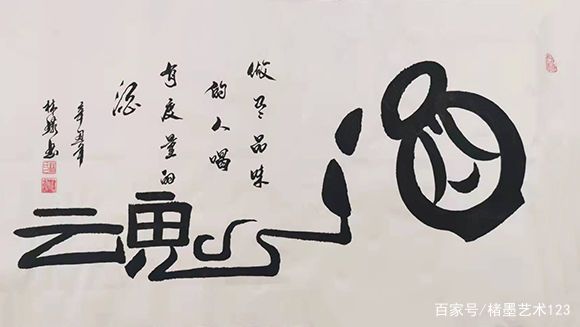 酒魂
做有品味
的人喝
有度量的
酒
辛丑年
林 书
百家号/楮墨艺术123